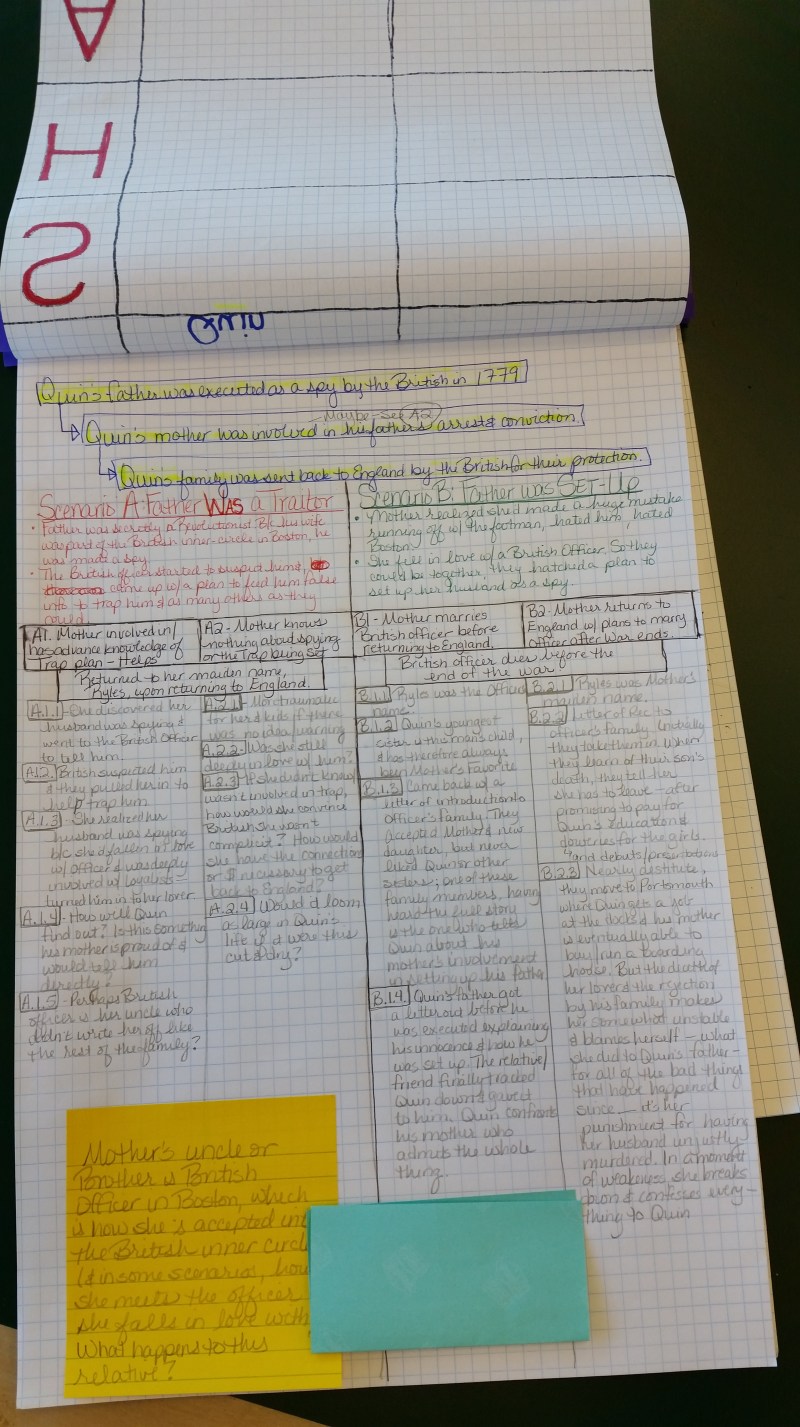 A
H
S
Quin
Quin's father was executed as a spy by the British in 1779
Maybe-see A2
Quin's mother was involved in his father's arrest & conviction.
Quin's family was sent back to England by the British for their protection.
Scenario A: Father WAS a Traitor
• Father was secretly a Revolutionist. B/c his wife
was part of the British inner-circle in Boston, he
was made a spy.
• The British officer started to suspect him &
came up w/ a plan to feed him false
info to trap him & as many others as they
could.
Scenario B: Father was SET-UP
• Mother realized she'd made a huge mistake
running off w/ the footman, hated him, hated
Boston.
• She fell in love w/ a British Officer. So they
could be together, they hatched a plan to
set up her husband as a spy.
A1. Mother involved in/
has advance knowledge of
Trap plan - Helps
A2 - Mother knows
nothing about spying
or the Trap being set
Returned to her maiden name,
Ryles, upon returning to England.
B1 - Mother marries
British officer before
returning to England.
B2 - Mother returns to
England w/ plans to marry
officer after War ends.
British officer dies before the
end of the war
A.1.1 - She discovered her
husband was spying &
went to the British Officer
to tell him.
A.1.2. British suspected him
& they pulled her in to
help trap him
A.1.3 - She realized her
husband was spying
b/c she'd fallen in love
w/ officer & was deeply
involved w/ Loyalists -
turned him in to her lover
A.1.4 - How will Quin
find out? Is this something
his mother is proud of &
would tell him
directly?
A.1.5 - Perhaps British
officer is her uncle who
didn't write her off like
the rest of the family?
A.2.1 - More traumatic
for her & kids if there
was no idea/warning
A.2.2 - Was she still
deeply in love w/ him?
A.2.3 - If she didn't know/
wasn't involved in trap,
how would she convince
British she wasn't
complicit? How would
she have the connections
or $ necessary to get
back to England?
A.2.4 - Would it loom
as large in Quin's
life if it were this
cut & dry?
B.1.1 Ryles was the Officer's
name.
B.1.2 Quin's youngest
sister is this man's child,
& has therefore always
been Mother's Favorite
B.1.3 Came back w/ a
letter of introduction to
officer's family. They
accepted Mother & new
daughter, but never
liked Quin or other
sisters; one of these
family members, having
heard the full story
is the one who tells
Quin about his
mother's involvement
in setting up his father
B.1.4. Quin's father got
a letter out before he
was executed explaining
his innocence & how he
was set up. The relative/
friend finally tracked
Quin down & gave it
to him. Quin confronts
his mother who
admits the whole
thing.
B.2.1 Ryles was Mother's
maiden name.
B.2.2 Letter of Rec to
officer's family. Initially
they take them in. When
they learn of their son's
death, they tell her
she has to leave - after
promising to pay for
Quin's education &
dowries for the girls
and debuts/presentations
B.2.3 Nearly destitute,
they move to Portsmouth
where Quin gets a job
at the docks & his mother
is eventually able to
buy/run a boarding
house. But the death of
her lover & the rejection
by his family makes
her somewhat unstable
& blames herself - what
she did to Quin's father -
for all of the bad things
that have happened
since. It's her
punishment for having
her husband unjustly
murdered. In a moment
of weakness, she breaks
down & confesses every-
thing to Quin
Mother's uncle or
Brother is British
Officer in Boston, which
is how she's accepted
the British inner circle
(& in some scenarios, how
she meets the officer
she falls in love with
What happens to this
relative?